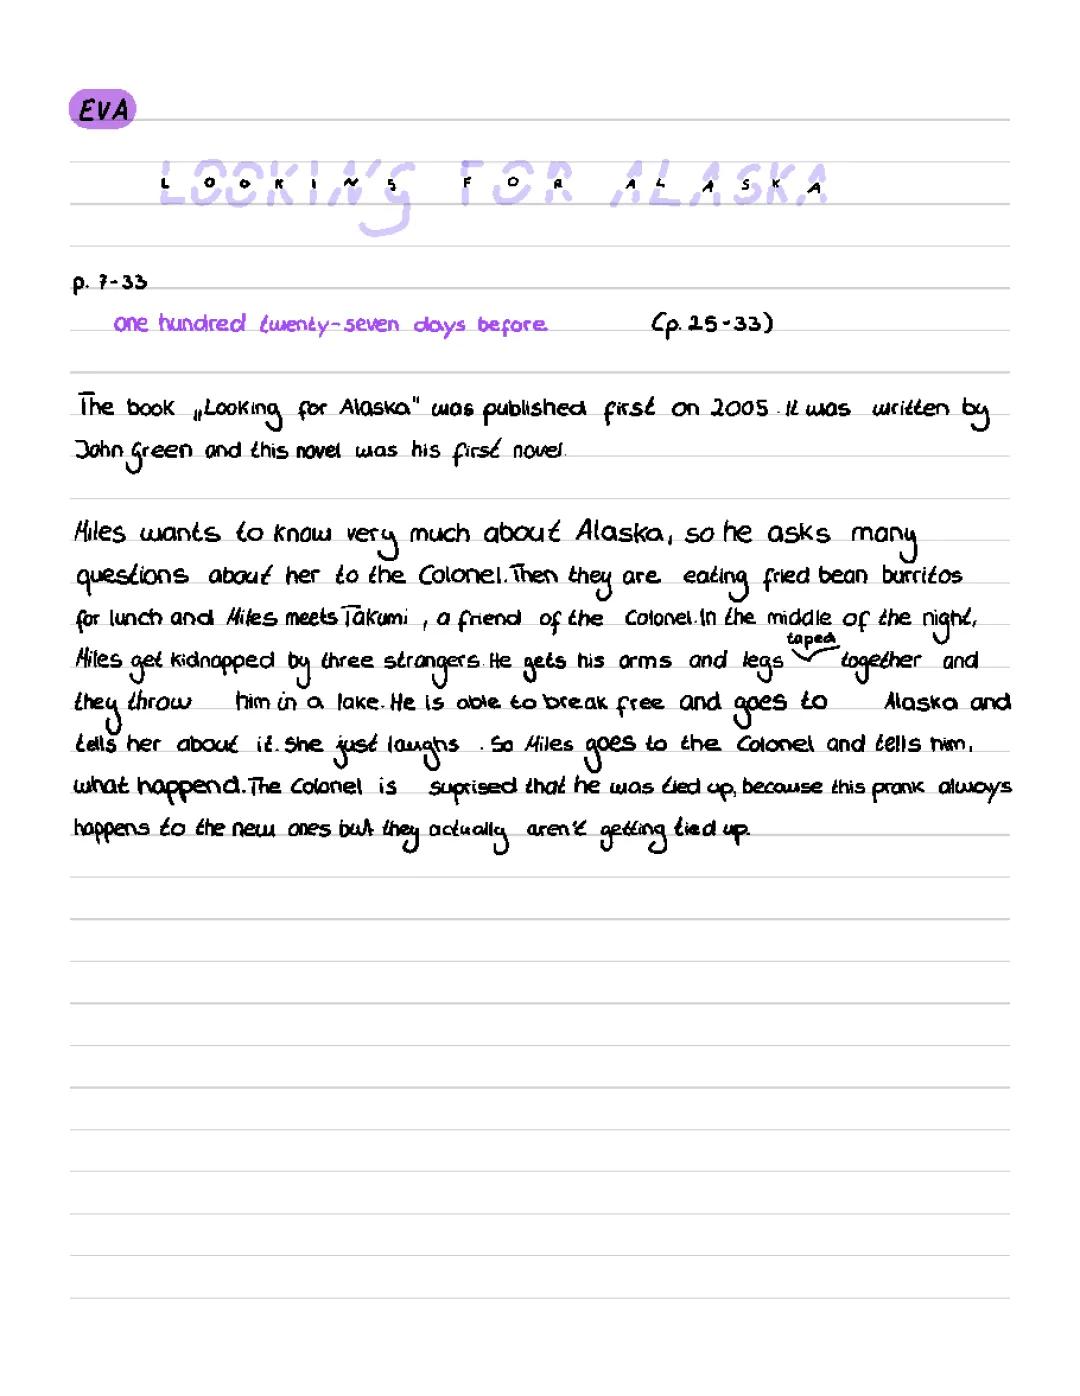 EVA
LOOKING FOR ALASKA
p. 7-33
one hundred twenty-seven days before (p. 25-33)
The book „Looking for Alaska" was published first on 2005. It was written by
John Green and this novel was his first novel.
Miles wants to know very much about Alaska, so he asks many
questions about her to the Colonel. Then they are eating fried bean burritos
for lunch and Miles meets Takumi, a friend of the Colonel. In the middle of the night,
taped
Miles get kidnapped by three strangers. He gets his arms and legs together and
they throw him in a lake. He is able to break free and goes to Alaska and
tells her about it. She just laughs. So Miles goes to the Colonel and tells him,
what happend. The Colonel is suprised that he was tied up, because this prank always
happens to the new ones but they actually aren't getting tied up.